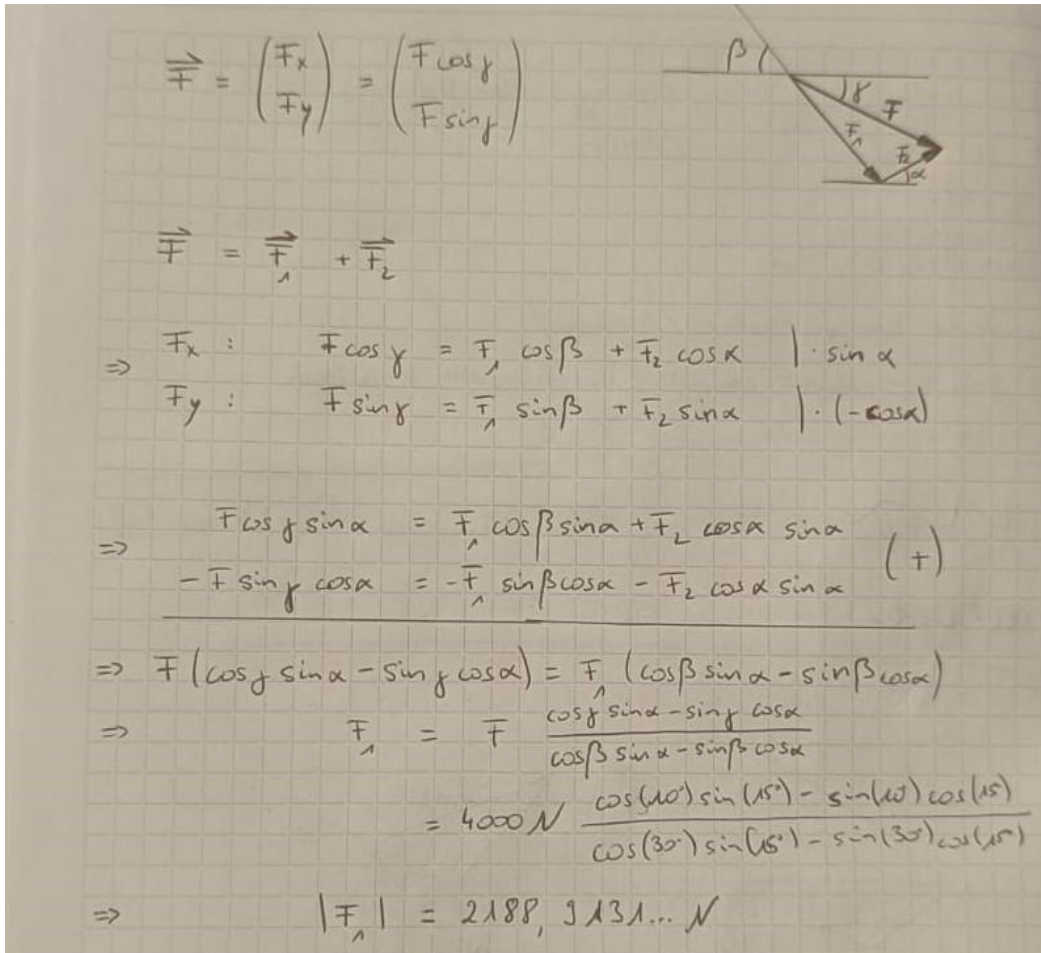 F⃗ = (F_x F_y) = (F cos γ F sin γ)
β γ F F_1 F_2 α
F⃗ = F⃗_1 + F⃗_2
⇒ F_x : F cos γ = F_1 cos β + F_2 cos α | · sin α
F_y : F sin γ = F_1 sin β + F_2 sin α | · (-cos α)
⇒ F cos γ sin α = F_1 cos β sin α + F_2 cos α sin α (+)
- F sin γ cos α = -F_1 sin β cos α - F_2 cos α sin α
⇒ F (cos γ sin α - sin γ cos α) = F_1 (cos β sin α - sin β cos α)
⇒ F_1 = F (cos γ sin α - sin γ cos α) / (cos β sin α - sin β cos α)
= 4000 N (cos(10°) sin(15°) - sin(10°) cos(15)) / (cos(30°) sin(15°) - sin(30°) cos(15°))
⇒ |F_1| = 2188,9131... N